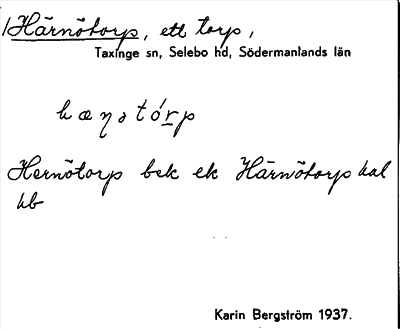 Härnötorp, ett torp,
Taxinge sn, Selebo hd, Södermanlands län
hæŋətórp
Hernötorp bek ek Härnötorp kal
kb
Karin Bergström 1937.